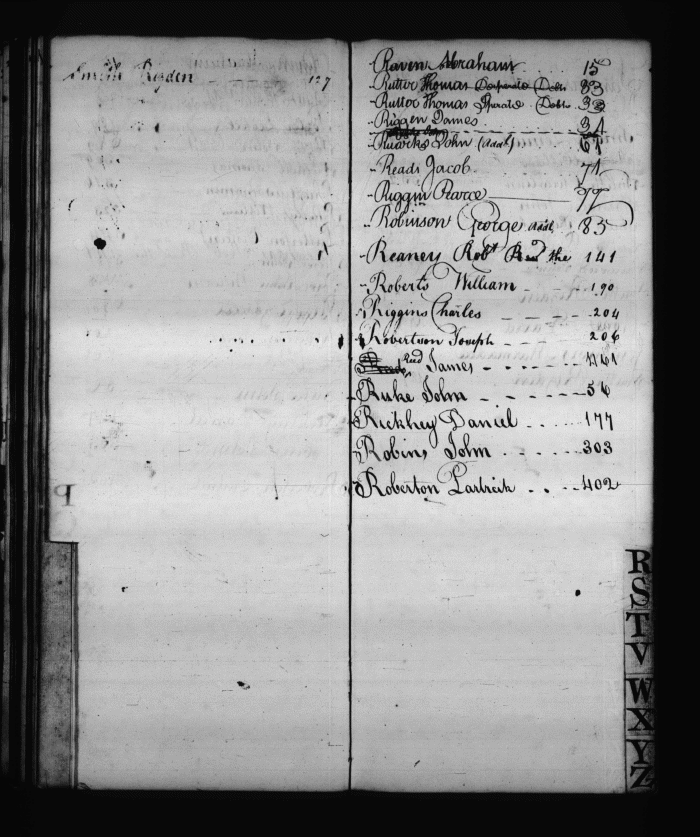 Smith Rigden 127
Raven Abraham 15
Rutter Thomas Desperate Debts 83
Rutter Thomas Sperate Debts 32
Riggen James 31
John (add) 61
Reads Jacob 71
Riggin Pearce 77
Robinson George add 83
Reaney Robt Read the 141
Roberts William 190
Riggins Charles 204
Robertson Joseph 206
Reed James 461
Ruke John 56
Rickhey Daniel 177
Robins John 303
Roberton Partrick 402
P
R
S
T
V
W
X
Y
Z